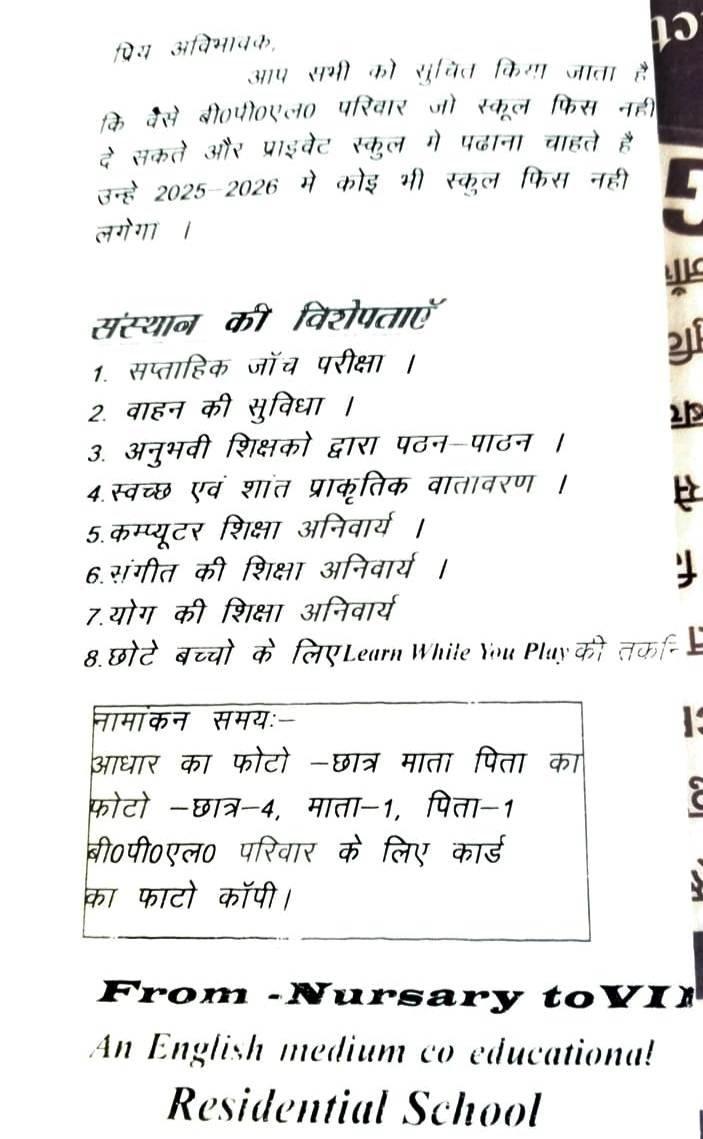 प्रिय अविभावक,
आप सभी को सुचित किया जाता है
कि वैसे बी०पी०एल० परिवार जो स्कूल फिस नही
दे सकते और प्राइवेट स्कुल मे पढाना चाहते है
उन्हे 2025-2026 मे कोइ भी स्कुल फिस नही
लगेगा ।
संस्थान की विशेषताएँ
1. सप्ताहिक जॉच परीक्षा ।
2. वाहन की सुविधा ।
3. अनुभवी शिक्षको द्वारा पठन-पाठन ।
4. स्वच्छ एवं शांत प्राकृतिक वातावरण ।
5. कम्प्यूटर शिक्षा अनिवार्य ।
6. संगीत की शिक्षा अनिवार्य ।
7. योग की शिक्षा अनिवार्य
8. छोटे बच्चो के लिए Learn While You Play की तकनि
नामांकन समय:-
आधार का फोटो -छात्र माता पिता का
फोटो -छात्र-4, माता-1, पिता-1
बी०पी०एल० परिवार के लिए कार्ड
का फाटो कॉपी।
From -Nursary to VII
An English medium co educational
Residential School